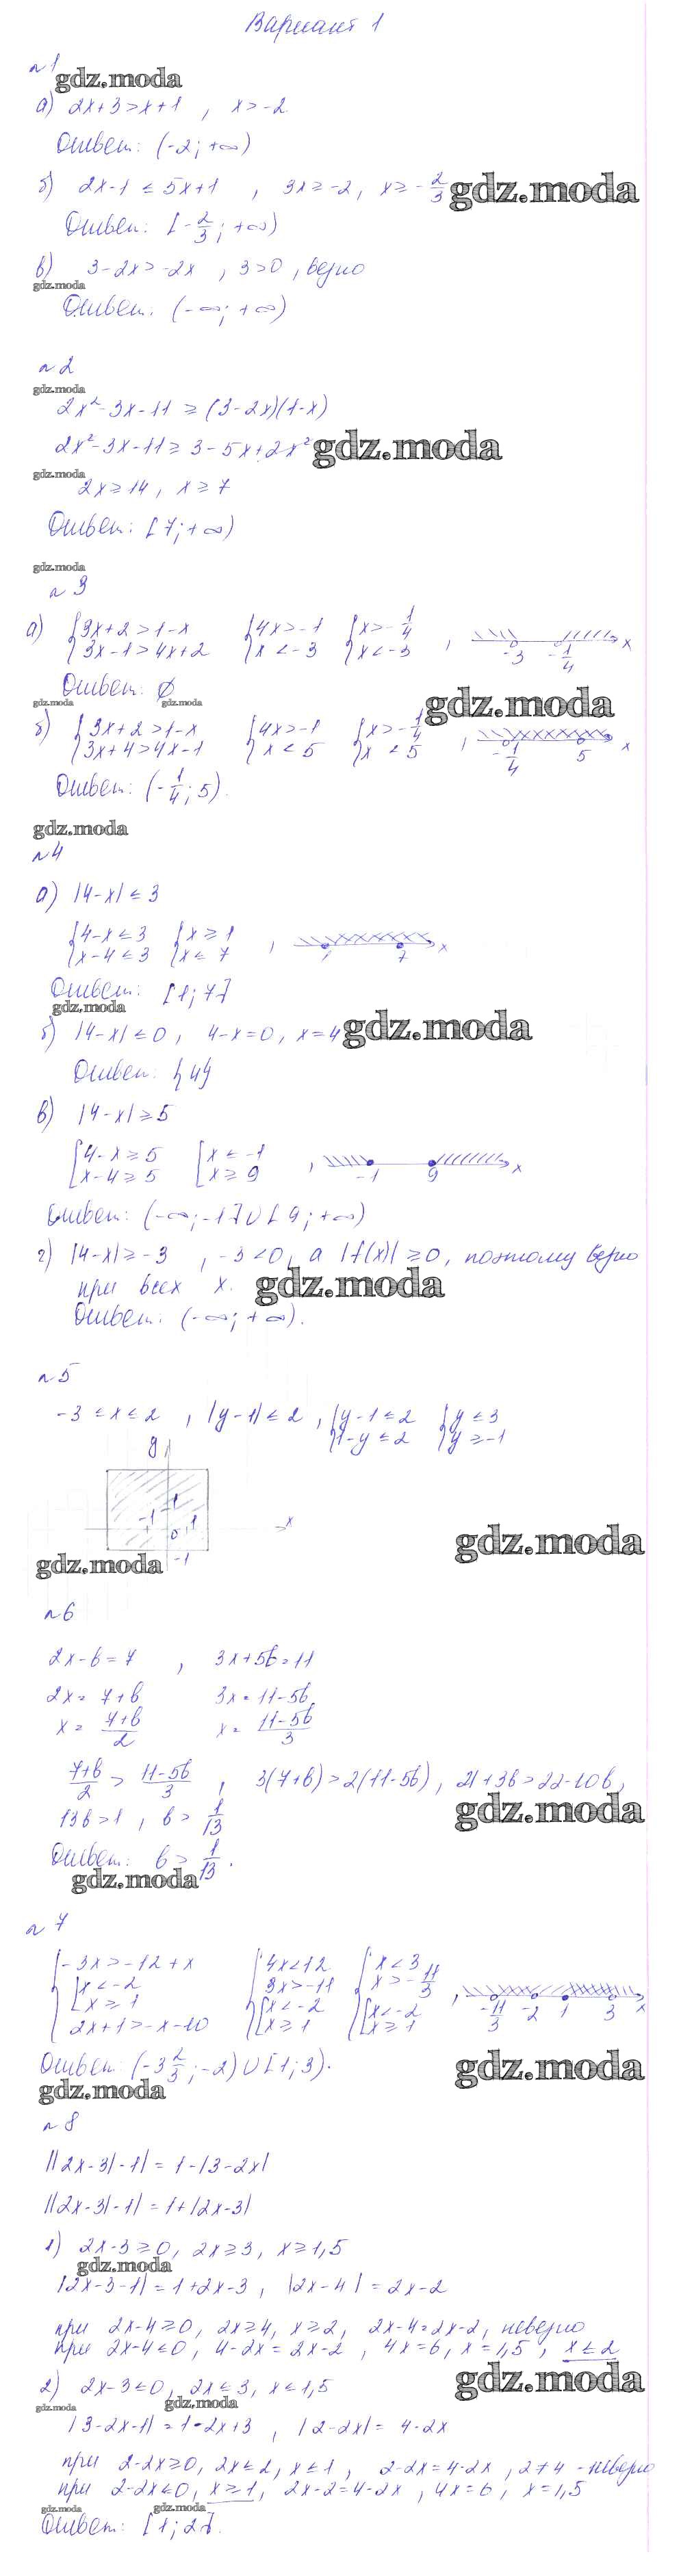 Вариант 1
№1
gdz.moda
а) 2x+3>x+1 , x>-2
Ответ: (-2; +∞)
б) 2x-1 ≤ 5x+1 , 3x ≥ -2, x ≥ -2/3 gdz.moda
Ответ: [-2/3; +∞)
в) 3-2x>-2x , 3>0, верно
gdz.moda
Ответ: (-∞; +∞)
№2
gdz.moda
2x²-3x-11 ≥ (3-2x)(1-x)
2x²-3x-11 ≥ 3-5x+2x² gdz.moda
gdz.moda
2x ≥ 14, x ≥ 7
Ответ: [7; +∞)
gdz.moda
№3
а) {3x+2>1-x {4x>-1 {x>-1/4
{3x-1>4x+2 {x<-3 {x<-3 , -3 -1/4 x
Ответ: ∅
gdz.moda gdz.moda gdz.moda
б) {3x+2>1-x {4x>-1 {x>-1/4
{3x+4>4x-1 {x<5 {x<5 , -1/4 5 x
Ответ: (-1/4; 5).
gdz.moda
№4
а) |4-x| ≤ 3
{4-x ≤ 3 {x ≥ 1
{x-4 ≤ 3 {x ≤ 7 , 1 7 x
Ответ: [1; 7]
gdz.moda
б) |4-x| ≤ 0, 4-x=0, x=4 gdz.moda
Ответ: {4}
в) |4-x| ≥ 5
[4-x ≥ 5 [x ≤ -1
[x-4 ≥ 5 [x ≥ 9 , -1 9 x
Ответ: (-∞; -1] ∪ [9; +∞)
г) |4-x| ≥ -3 , -3<0, а |f(x)| ≥ 0, поэтому верно
при всех x. gdz.moda
Ответ: (-∞; +∞).
№5
-3 ≤ x ≤ 2 , |y-1| ≤ 2 , {y-1 ≤ 2 {y ≤ 3
{1-y ≤ 2 {y ≥ -1
y
1
-1 0 1 x
-1
gdz.moda gdz.moda
№6
2x-b=7 , 3x+5b=11
2x=7+b 3x=11-5b
x=(7+b)/2 x=(11-5b)/3
(7+b)/2 > (11-5b)/3 , 3(7+b)>2(11-5b), 21+3b>22-10b,
13b>1 , b>1/13 gdz.moda
Ответ: b>1/13.
gdz.moda
№7
{-3x>-12+x {4x<12 {x<3
{[x<-2 {3x>-11 {x>-11/3
{[x ≥ 1 {[x<-2 {[x<-2 , -11/3 -2 1 3 x
{2x+1>-x-10 {[x ≥ 1 {[x ≥ 1
Ответ: (-3 2/3; -2) ∪ [1; 3).
gdz.moda gdz.moda
№8
||2x-3|-1| = 1-|3-2x|
||2x-3|-1| = 1+|2x-3|
1) 2x-3 ≥ 0, 2x ≥ 3, x ≥ 1,5
gdz.moda
|2x-3-1| = 1+2x-3 , |2x-4| = 2x-2
при 2x-4 ≥ 0, 2x ≥ 4, x ≥ 2, 2x-4=2x-2, неверно
при 2x-4 ≤ 0, 4-2x=2x-2 , 4x=6, x=1,5 , x ≤ 2
2) 2x-3 ≤ 0, 2x ≤ 3, x ≤ 1,5 gdz.moda
gdz.moda gdz.moda
|3-2x-1| = 1-2x+3 , |2-2x| = 4-2x
при 2-2x ≥ 0, 2x ≤ 2, x ≤ 1 , 2-2x=4-2x , 2≠4 - неверно
при 2-2x ≤ 0, x ≥ 1, 2x-2=4-2x, 4x=6, x=1,5
gdz.moda gdz.moda
Ответ: [1; 2].